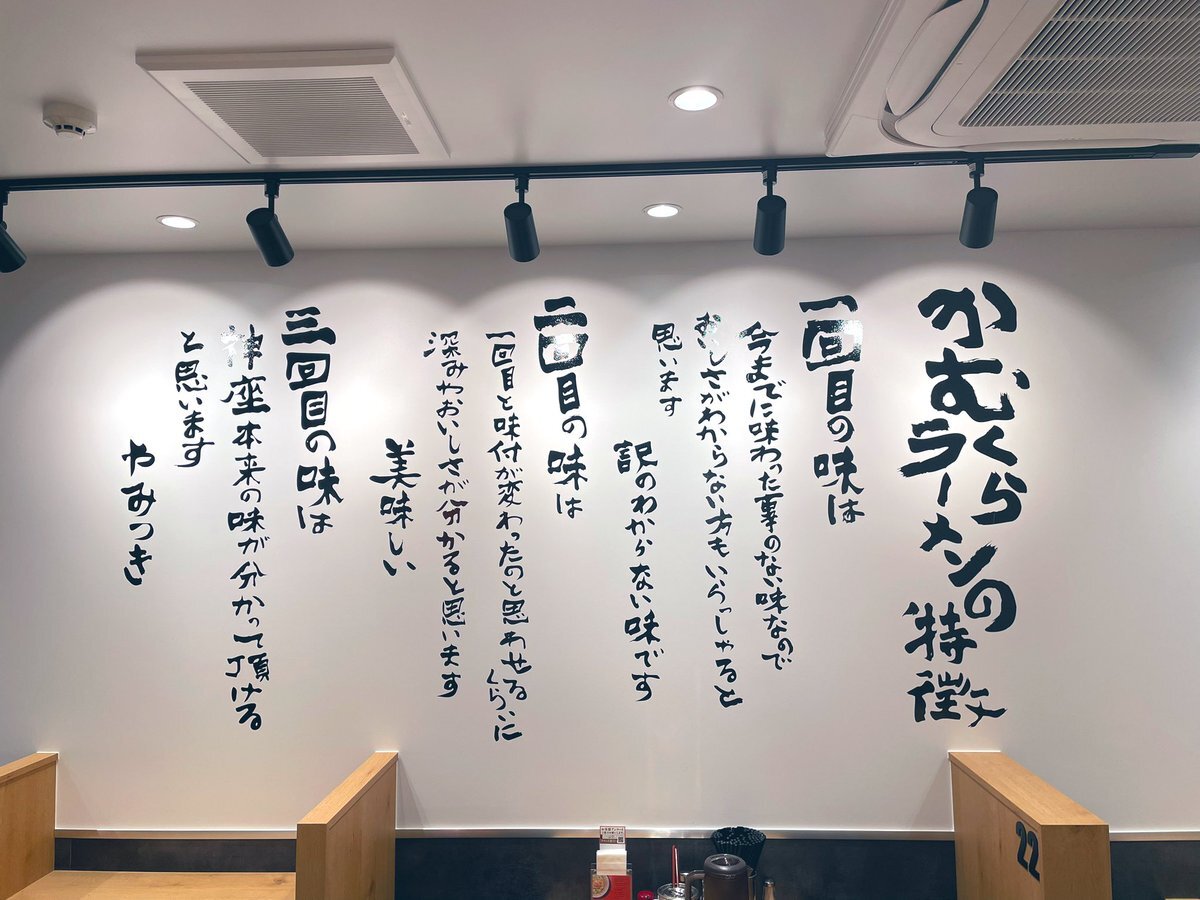 かむくら
ラーメンの
特徴
一回目の味は
今までに味わった事のない味なので
むしさがわからない方もいらっしゃると
思います
訳のわからない味です
二回目の味は
一回目と味付が変わったのと思わせる
くらいに
深みやおいしさが分かると思います
美味しい
三回目の味は
神座本来の味が分かって頂ける
と思います
やみつき
22